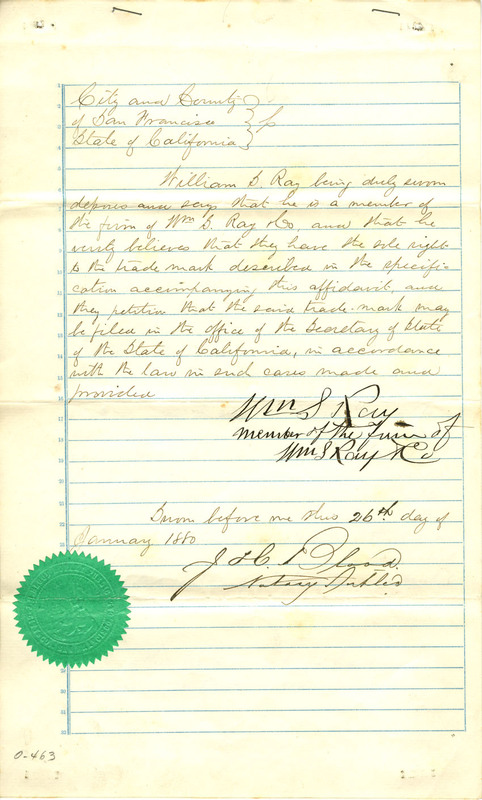 City and County
of San Francisco
State of California
William S. Ray being duly sworn
deposes and says that he is a member of
the firm of Wm S. Ray & Co and that he
verily believes that they have the sole right
to the trade mark described in the specifi-
cation accompanying this affidavit, and
they petition that the said trade-mark may
be filed in the office of the Secretary of State
of the State of California, in accordance
with the law in such cases made and
provided
Wm S Ray
member of the Firm of
Wm S Ray & Co
Sworn before me this 26th day of
January 1880
Blood.
Notary Public
0-463